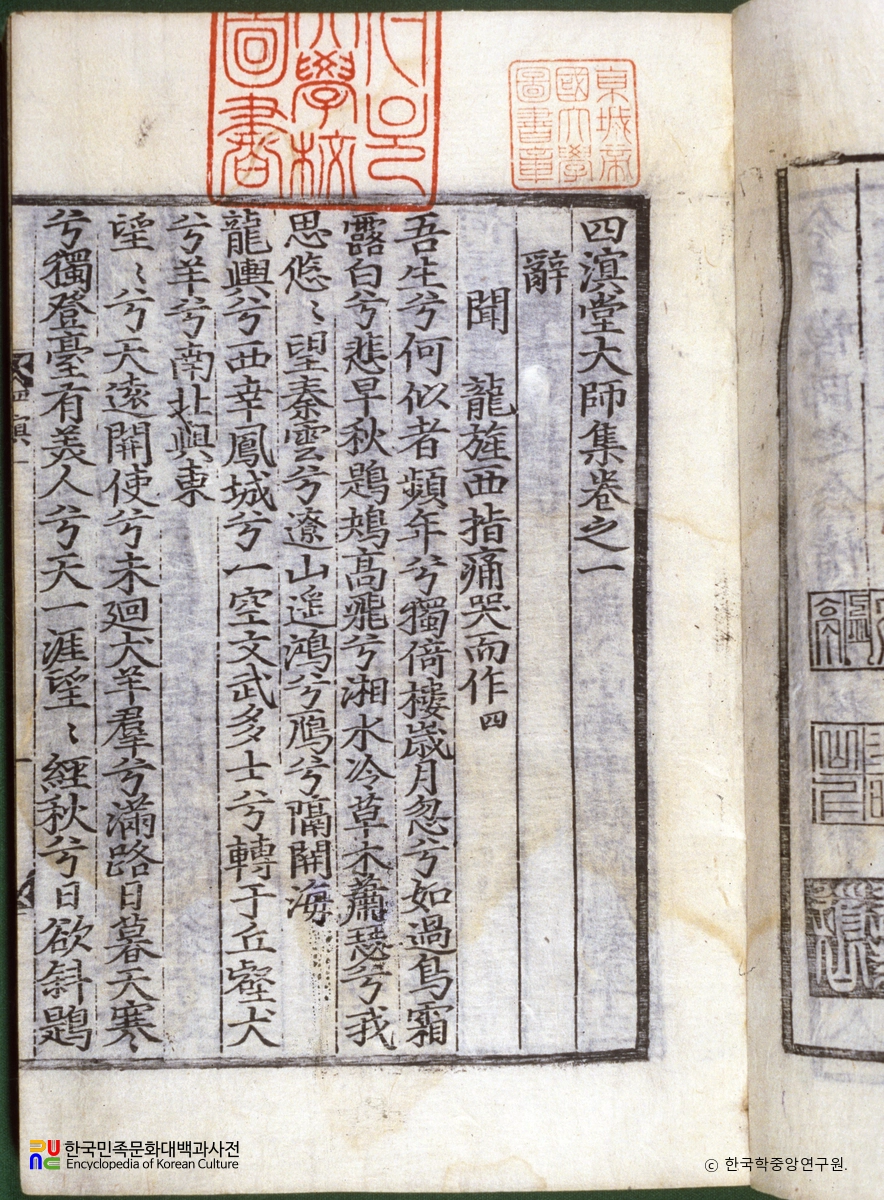 四溟堂大師集卷之一
辭
聞 龍旌西指痛哭而作四
吾生兮何似者頻年兮獨倚樓歲月忽兮如過鳥霜
露白兮悲早秋鶗鴂高飛兮湘水冷草木蕭瑟兮我
思悠〻望秦雲兮遼山遥鴻兮鴈兮隔開海
龍輿兮西幸鳳城兮一空文武多士兮轉于丘壑犬
兮羊兮南北與東
望〻兮天遠開使兮未廻犬羊羣兮滿路日暮天寒〻
兮獨登臺有美人兮天一涯望〻經秋兮日欲斜鶗
京城帝
國大學
圖書章
大學校
圖書
한국민족문화대백과사전
Encyclopedia of Korean Culture
© 한국학중앙연구원.